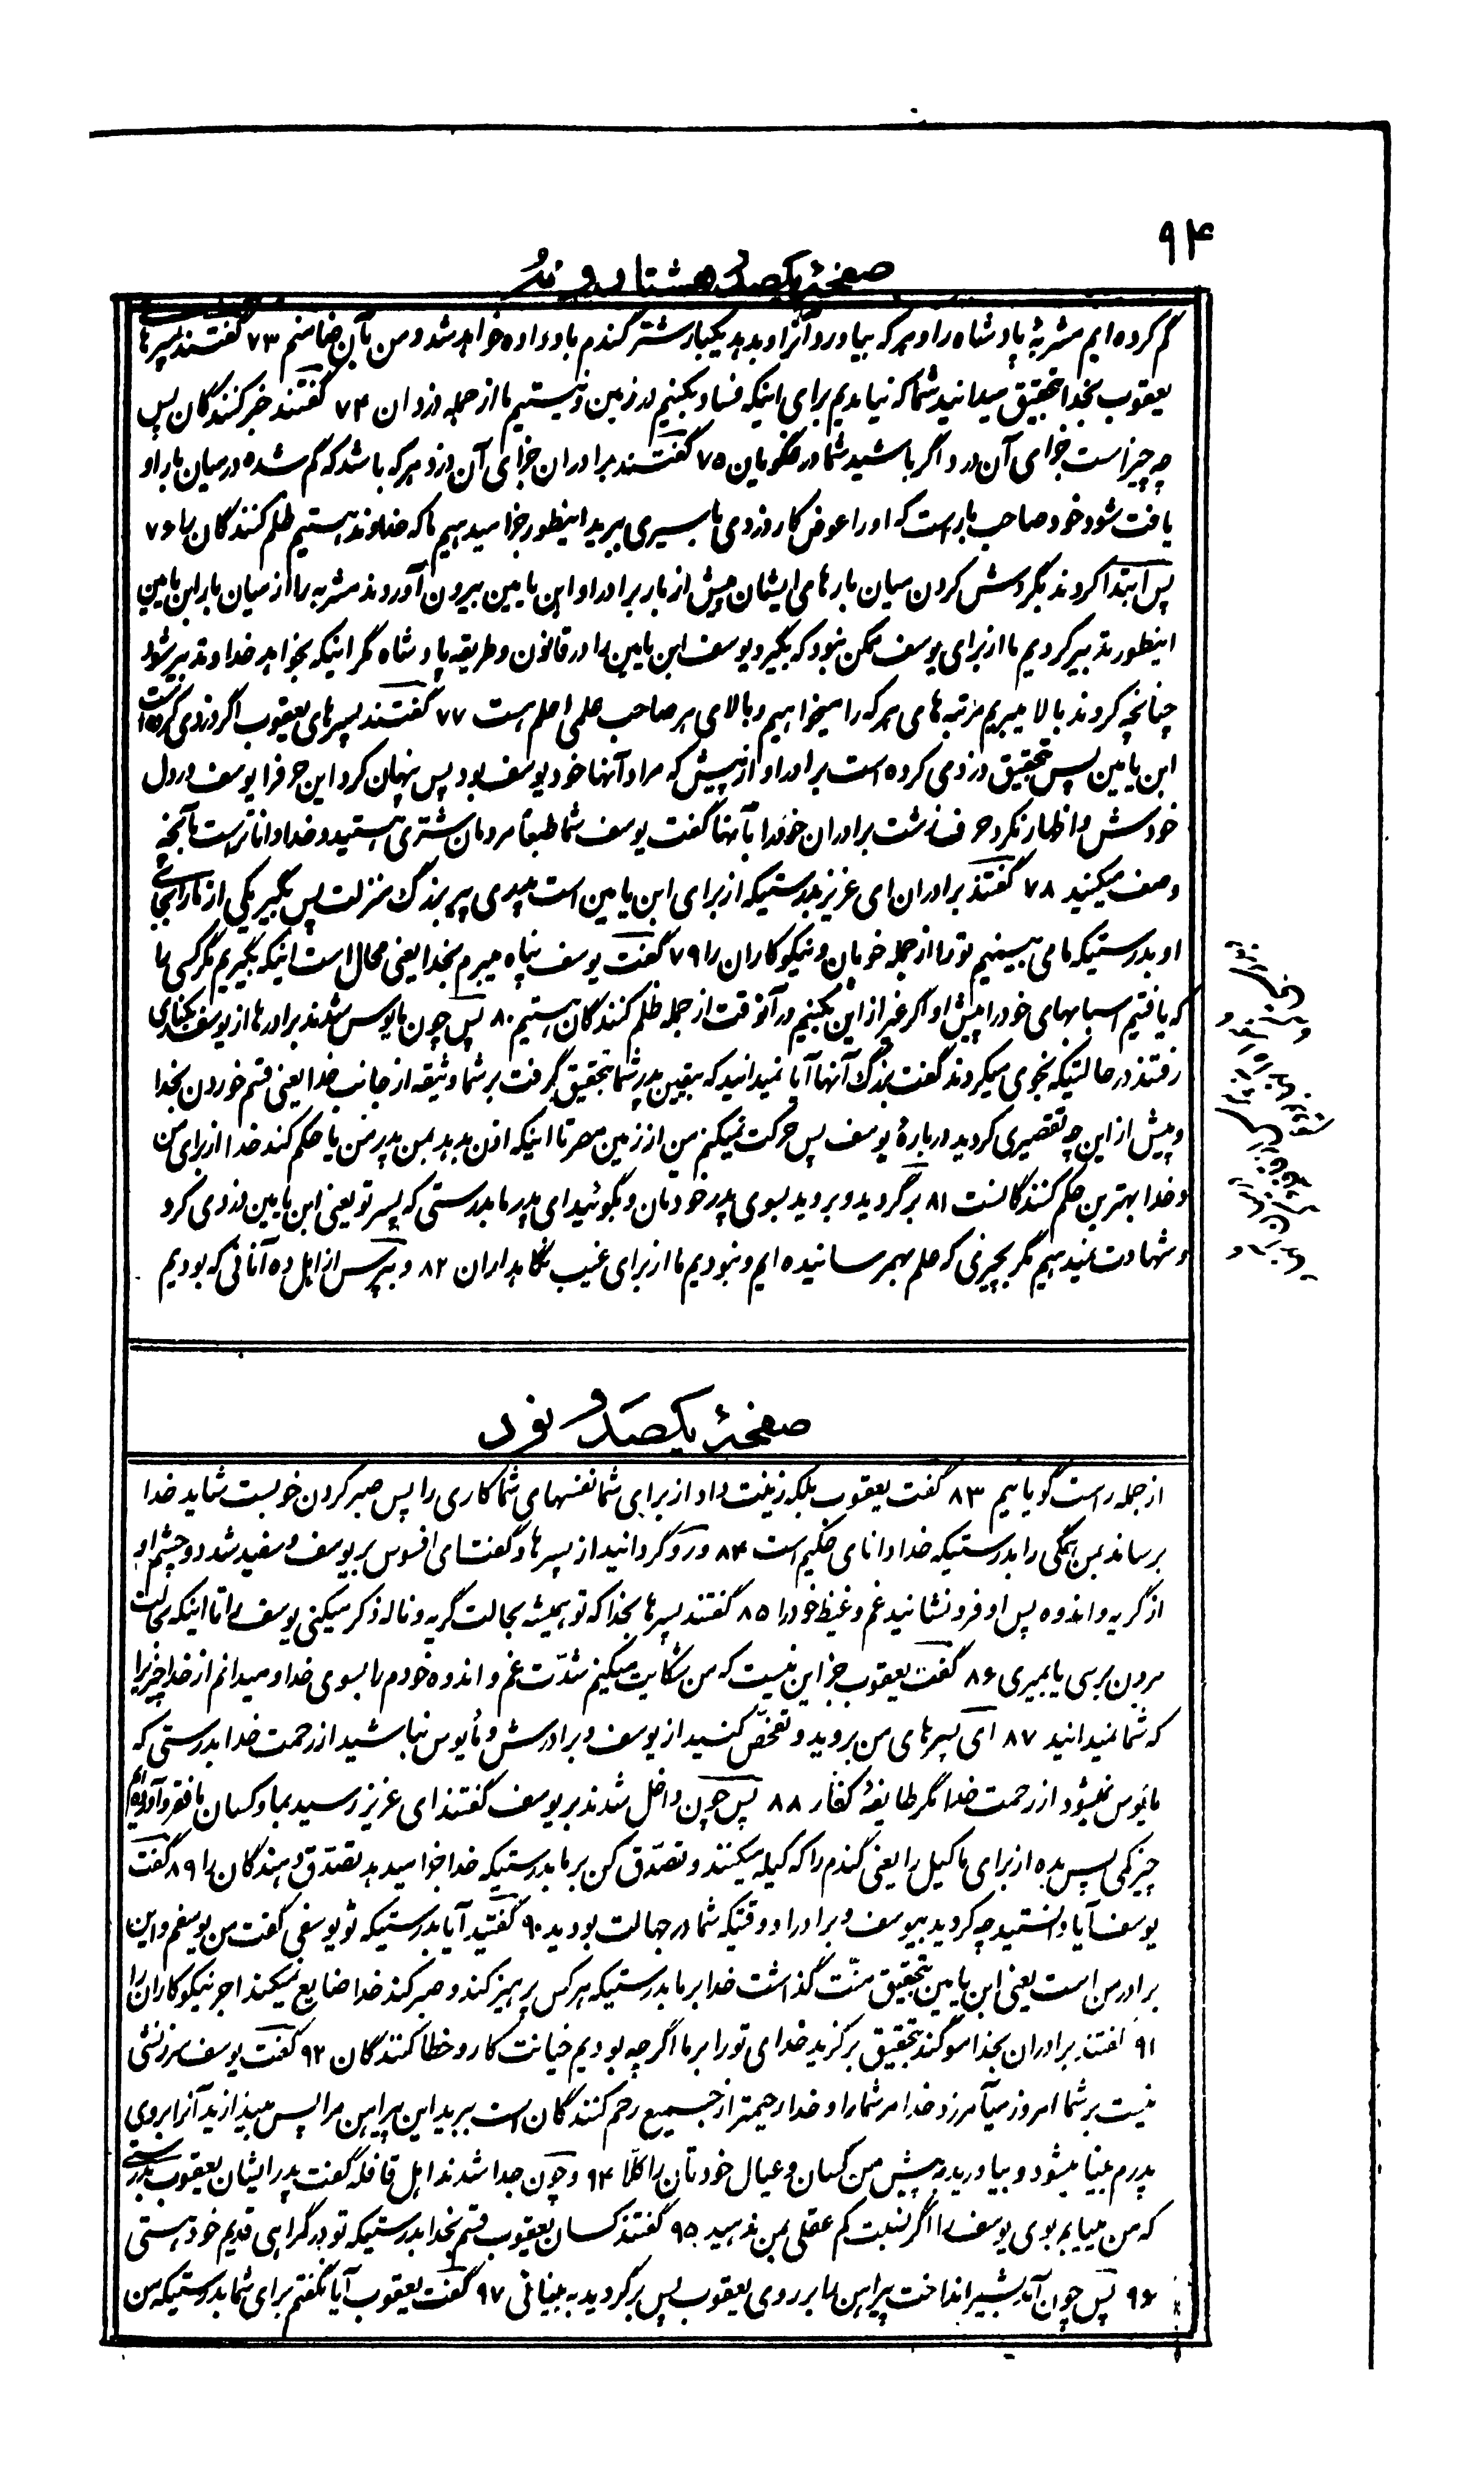 ۹۴
صفحهٔ یکصد و هشتاد و نه
گم کرده‌ایم مشربهٔ پادشاه را و هر که بیاورد آنرا و بدهد یکبار شتر گندم باو داده خواهد شد و من بآن ضامنم ۷۳ گفتند پسرها
یعقوب بخدا تحقیق میدانید شما که نیامدیم برای اینکه فساد بکنیم در زمین و نیستیم ما از جمله دزدان ۷۴ گفتند خبر کنندگان پس
چه چیز است جزای آن دزد اگر باشید شما دروغگویان ۷۵ گفتند برادران جزای آن دزد هر که باشد که گم شده در میان بار او
یافت شود خود صاحب بار است که او را عوض کار دزدی باسیری ببرید اینطور جزا میدهیم ما که خداوند هستیم ظلم کنندگان را ۷۶
پس ابتدا کردند بگردش کردن میان بارهای ایشان پیش از بار برادر او ابن یامین بیرون آوردند مشربه را از میان بار ابن یامین
اینطور تدبیر کردیم ما از برای یوسف ممکن نبود که بگیرد یوسف ابن یامین را در قانون و طریقه پادشاه مگر اینکه بخواهد خداوند تدبیر شود
چنانچه کردند بالا میبریم مرتبه‌های هر که را میخواهیم و بالای هر صاحب علمی اعلم است ۷۷ گفتند پسرهای یعقوب اگر دزدی کرده است
ابن یامین پس تحقیق دزدی کرده است برادر او از پیش که مراد آنها خود یوسف بود پس پنهان کرد این حرفرا یوسف در دل
خودش و اظهار نکرد حرف زشت برادران خود را بآنها گفت یوسف شما طبعاً مردمان شتری هستید و خدا داناتر است بآنچه
وصف میکنید ۷۸ گفتند برادران ای عزیز بدرستیکه از برای ابن یامین است پدری پیر بزرگ منزلت پس بگیر یکی از ما را بجای
او بدرستیکه ما می بینیم تو را از جمله خوبان و نیکوکاران را ۷۹ گفت یوسف پناه میبرم بخدا یعنی محال است اینکه بگیریم مگر کسی را
که یافتیم اسبابهای خود را پیش او اگر غیر از این بکنیم در آنوقت از جمله ظلم کنندگان هستیم ۸۰ پس چون مأیوس شدند برادرها از یوسف بکناری
رفتند در حالتیکه نجوی میکردند گفت بزرگ آنها آیا نمیدانید که بیقین پدر شما بتحقیق گرفت بر شما وثیقه از جانب خدا یعنی قسم خوردن بخدا
و پیش از این چه تقصیری کردید دربارهٔ یوسف پس حرکت نمیکنم من از زمین مصر تا اینکه اذن بدهد بمن پدر من یا حکم کند خدا از برای من
و خدا بهترین حکم کنندگانست ۸۱ برگردید و بروید بسوی پدر خودتان و بگوئید ای پدر ما بدرستی که پسر تو یعنی ابن یامین دزدی کرد
و شهادت نمیدهیم مگر بچیزی که علم بهمرسانیده‌ایم و نبودیم ما از برای غیب نگاهداران ۸۲ و بپرس از اهل ده آنانی که بودیم
صفحهٔ یکصد و نود
از جمله راست گویانیم ۸۳ گفت یعقوب بلکه زینت داد از برای شما نفسهای شما کاری را پس صبر کردن خوبست شاید خدا
برساند بمن همگی را بدرستیکه خدا دانای حکیم است ۸۴ و رو گردانید از پسرها و گفت ای افسوس بر یوسف و سفید شد دو چشم او
از گریه و اندوه پس او فرو نشانید غم و غیظ خود را ۸۵ گفتند پسرها بخدا که تو همیشه بحالت گریه و ناله ذکر میکنی یوسف را تا اینکه بحالت
مردن برسی یا بمیری ۸۶ گفت یعقوب جز این نیست که من شکایت میکنم شدّت غم و اندوه خودم را بسوی خدا و میدانم از خدا چیزیرا
که شما نمیدانید ۸۷ ای پسرهای من بروید و تفحّص کنید از یوسف و برادرش و مأیوس نباشید از رحمت خدا بدرستی که
مأیوس نمیشود از رحمت خدا مگر طایفهٔ کفّار ۸۸ پس چون داخل شدند بر یوسف گفتند ای عزیز رسید بما و کسان ما فقر و آورده‌ایم
چیز کمی پس بده از برای ما کیل را یعنی گندم را که کیله میکنند و تصدّق کن بر ما بدرستیکه خدا جزا میدهد تصدّق دهندگان را ۸۹ گفت
یوسف آیا دانستید چه کردید بیوسف و برادر او وقتیکه شما در جهالت بودید ۹۰ گفتند آیا بدرستیکه تو یوسفی گفت من یوسفم و این
برادر من است یعنی ابن یامین بتحقیق منّت گذاشت خدا بر ما بدرستیکه هر کس پرهیز کند و صبر کند خدا ضایع نمیکند اجر نیکوکاران را
۹۱ گفتند برادران بخدا سوگند بتحقیق برگزید خدای تو را بر ما اگر چه بودیم خیانت کار و خطا کنندگان ۹۲ گفت یوسف سرزنشی
نیست بر شما امروز میآمرزد خدا مر شما را و خدا رحیمتر از جمیع رحم کنندگان است ببرید این پیراهن مرا پس بیندازید آنرا بروی
پدرم بینا میشود و بیاورید به پیش من کسان و عیال خودتان را کلّاً ۹۴ و چون جدا شدند اهل قافله گفت پدر ایشان یعقوب بدرستی
که من مییابم بوی یوسف را اگر نسبت کم عقلی بمن ندهید ۹۵ گفتند کسان یعقوب قسم بخدا بدرستیکه تو در گمراهی قدیم خود هستی
۹۶ پس چون آمد بشیر انداخت پیراهن را بر روی یعقوب پس برگردید به بینائی ۹۷ گفت یعقوب آیا نگفتم برای شما بدرستیکه من